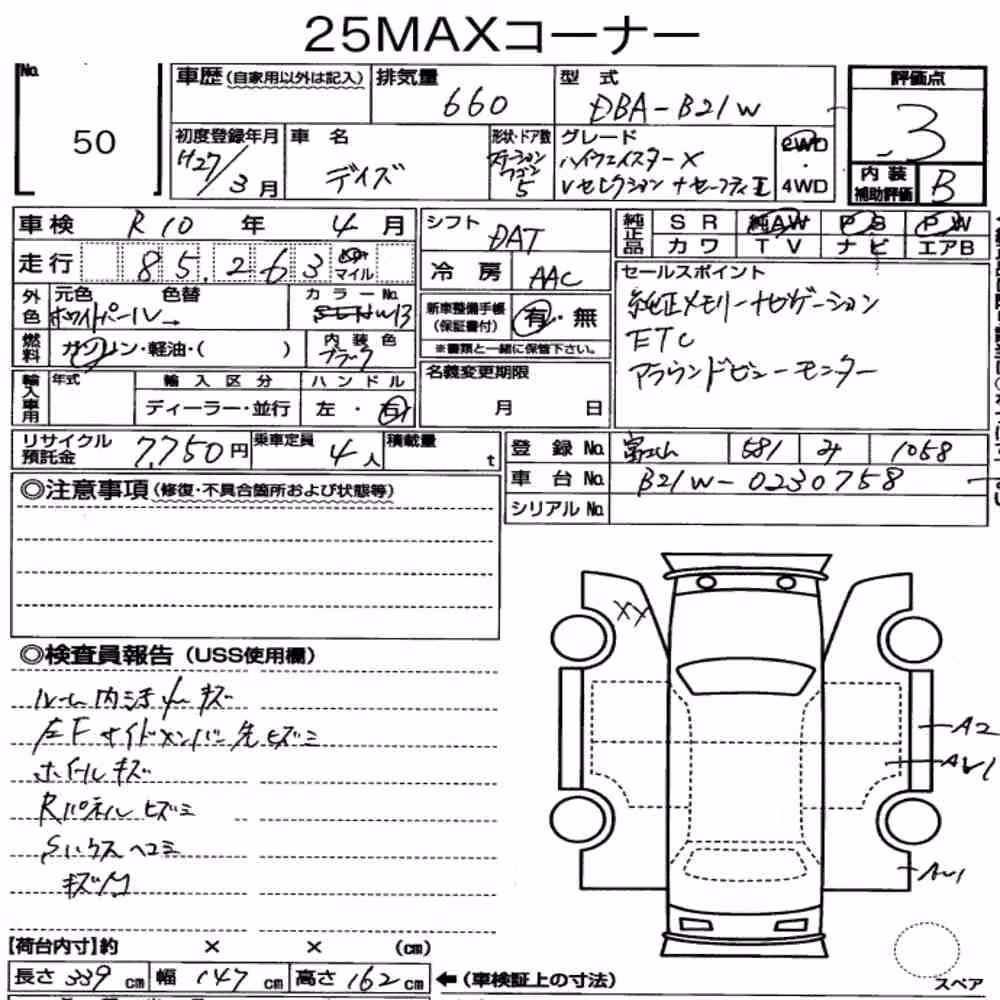 25MAXコーナー
No. 50
車歴(自家用以外は記入) 排気量 660 型式 DBA-B21W 評価点 3
初度登録年月 H27/3月 車名 デイズ 形状・ドア数 ステーションワゴン 5 グレード ハイウェイスターX Vセレクション+セーフティII 2WD・4WD 内装補助評価 B
車検 R10年 4月 シフト DAT 純正品 SR 純AW PS PW
カワ TV ナビ エアB
走行 85,263 km マイル 冷房 AAC
外色 元色 ホワイトパール 色替 カラーNo. W13 新車整備手帳(保証書付) 有・無
※書類と一緒に保管下さい。
セールスポイント
純正メモリーナビゲーション
ETC
アラウンドビューモニター
燃料 ガソリン・軽油・( ) 内装色 ブラック
名義変更期限 月 日
輸入車用 年式 輸入区分 ハンドル
ディーラー・並行 左・右
リサイクル預託金 7,750円 乗車定員 4人 積載量 t
登録No. 富山 581 み 1058
車台No. B21W-0230758
シリアルNo.
◎注意事項(修復・不具合箇所および状態等)
◎検査員報告(USS使用欄)
ルーム内汚れ キズ
左Fサイドメンバー先ヒズミ
ホイールキズ
Rパネルヒズミ
Sリクスヘコミ
キズ
XX
A2
AU1
AU1
【荷台内寸】約 × × (cm)
長さ 339cm 幅 147cm 高さ 162cm ←(車検証上の寸法)
スペア